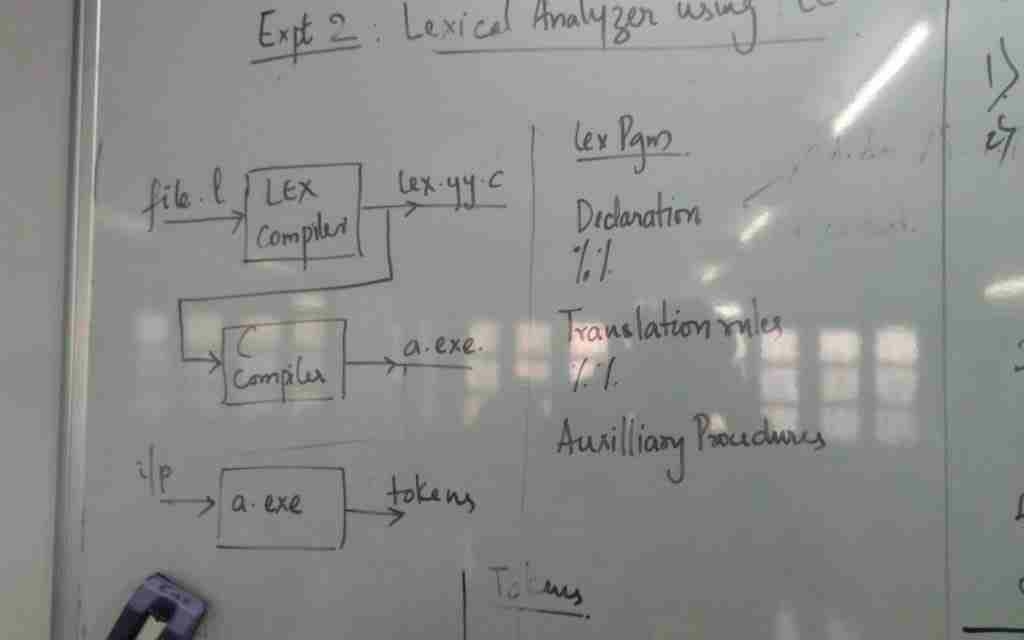 Expt 2 : Lexical Analyzer using
file.l
LEX
Compiler
lex.yy.c
C
Compiler
a.exe.
i/p
a.exe
tokens
Lex Pgm
Declaration
%%
Translation rules
%%
Auxilliary Procedures
Tokens
1)
2)